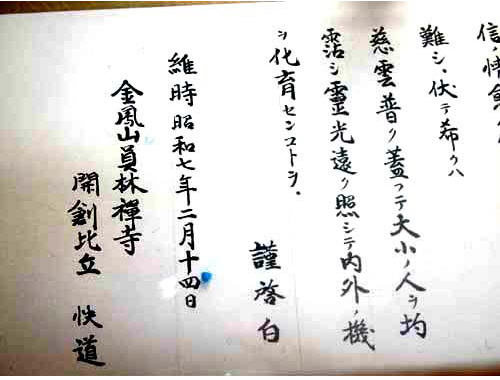 信ノ
難シ、伏テ希クハ
慈雲普ク蓋フテ大小ノ人ヲ均
霑シ靈光遠ク照シテ内外ノ機
ヲ化育センコトヲ。
謹啓白
維時昭和七年二月十四日
金鳳山員林禪寺
開創比丘 快道